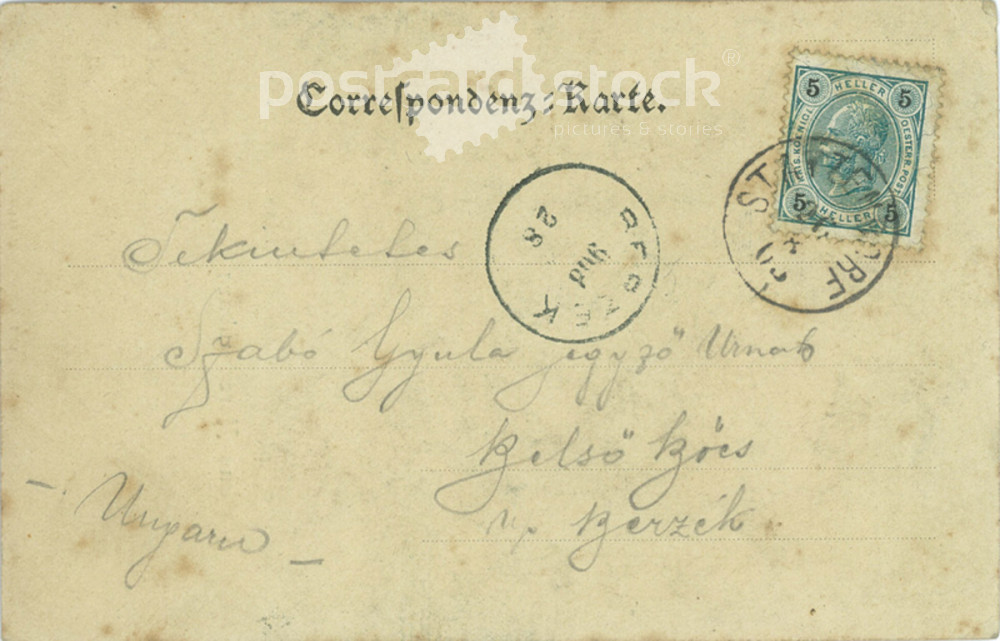 postcard stock®
pictures & stories
Correspondenz-Karte.
5 HELLER 5
KAIS. KOENIGL.
OESTERR. POST
5 HELLER 5
28
903
Tekintetes
Szabó Gyula jegyző Urnak
Belső Bőcs
u. p. Berzék
Ungarn